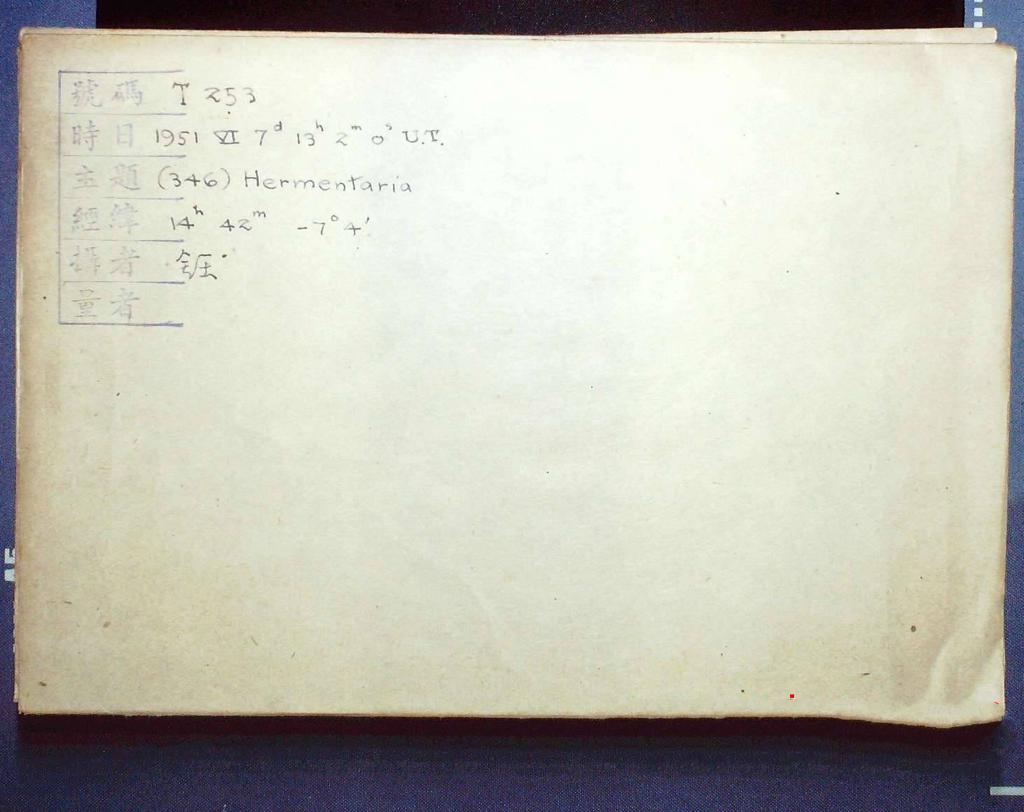 號碼 T 253
時日 1951 VI 7d 13h 2m 0s U.T.
主題 (346) Hermentaria
經緯 14h 42m -7° 4'
攝者
量者